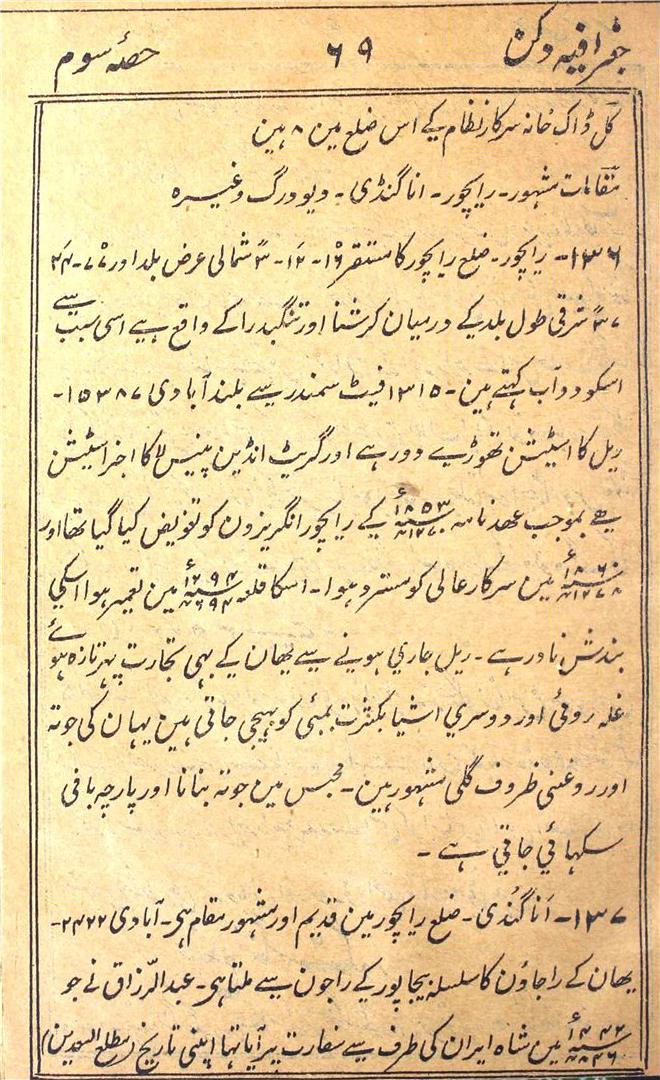 جغرافیہ دکن ۶۹ حصۂ سوم
کل ڈاک خانہ سرکار نظام کے اس ضلع مین ۸ ہین
مقامات مشہور۔ رایچور۔ اناگنڈی۔ دیودرگ وغیرہ
۱۳۶۔ رایچور۔ ضلع رایچور کا مستقر ۱۶۔ ۱۲۔ ۳ شمالی عرض بلد اور ۷۷۔ ۲۴
۳۷ شرقی طول بلد کے درمیان کرشنا اور تنگبدرا کے واقع ہے اسی سبب سے
اسکو دوآب کہتے ہین۔ ۱۳۱۵ فیٹ سمندر سے بلند آبادی ۱۵۳۸۷۔
ریل کا اسٹیشن تھوڑے دور ہے اور گریٹ انڈین پننس لا کا اخر اسٹیشن
ہے بموجب عھد نامہ ۱۸۵۳ء ۱۲۷۰ھ کے رایچور انگریزون کو تفویض کیا گیا تھا اور
۱۸۶۰ء ۱۲۷۸ھ مین سرکار عالی کو مسترد ہوا۔ اسکا قلعہ ۱۲۹۴ء ۶۹۴ھ مین تعمیر ہوا اسکی
بندش نادر ہے۔ ریل جاری ہونے سے یھان کے بہی تجارت پہر تازہ ہوئے
غلہ روئی اور دوسری اشیا بکثرت بمبئی کو بہیجی جاتی ہین یہان کی جوتہ
اور روغنی ظروف گلی مشہور ہین۔ محبس مین جوتہ بنانا اور پارچہ بافی
سکہائی جاتی ہے۔
۱۳۷۔ اناگنڈی۔ ضلع رایچور مین قدیم اور مشہور مقام ہی۔ آبادی ۲۴۲۲۔
یھان کے راجاؤن کا سلسلہ بیجاپور کے راجون سے ملتا ہی۔ عبدالرزاق نے جو
۱۴۴۲ء ۸۴۶ھ مین شاہ ایران کی طرف سے سفارت پر آیا تہا اپنی تاریخ (مطلع السعدین)